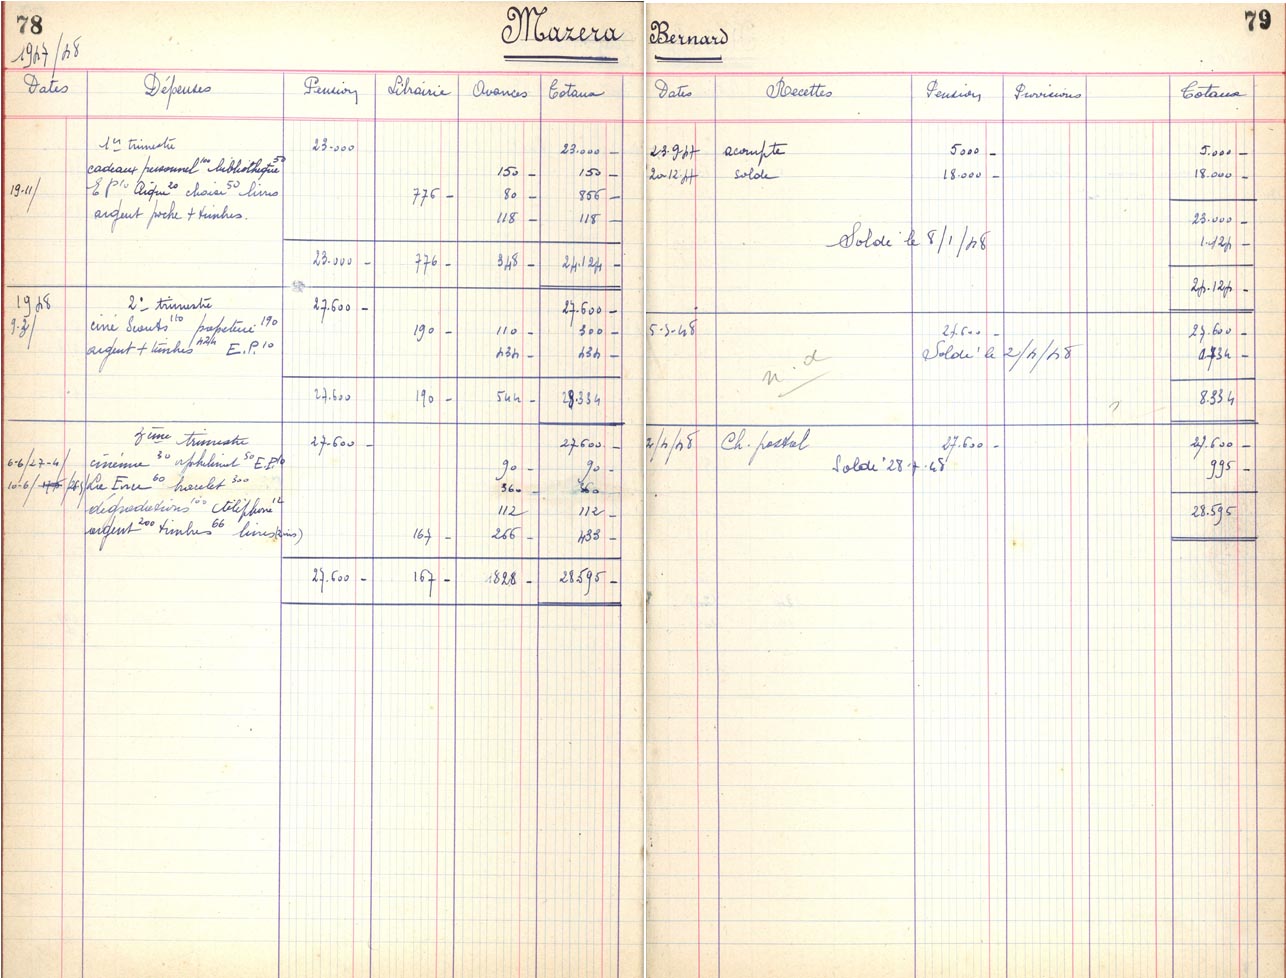 78
1947/48
Mazera
Dates Dépenses Pension Librairie Avances Totaux
1er trimestre 23.000 23.000 -
cadeaux personnel 100 bibliothèque 50 150 - 150 -
19-11/ E P 10 20 50 livres 776 - 80 - 856
argent poche + timbres. 118 - 118 -
23.000 - 776 - 348 - 24.124 -
1948 2e trimestre 27.600 - 27.600 -
9-3/ ciné Scouts 110 papeterie 190 190 - 110 - 300 -
argent + timbres 424 E.P. 10 434 - 434 -
27.600 190 - 544 - 28.334
3ème trimestre 27.600 - 27.600 -
6-6/27-4/ cinéma 30 orphelinat 50 E.P. 10 90 - 90 -
10-6/ La Force 60 bracelet 300 360 - 360 -
dégradations 100 téléphone 12 112 112 -
argent 200 timbres 66 livres 167 - 266 - 433 -
27.600 - 167 - 828 - 28.595 -
Bernard
79
Dates Recettes Pension Provisions Totaux
23-9-47 acompte 5000 - 5.000 -
20-12-47 solde 18.000 - 18.000 -
23.000 -
Soldé le 8/1/48 1.124 -
24.124 -
5-3-48 27.600 - 27.600 -
n.d Soldé le 2/4/48 734 -
8.334 -
2/4/48 Ch. postal 27.600 - 27.600 -
Soldé 28-7-48 995 -
28.595